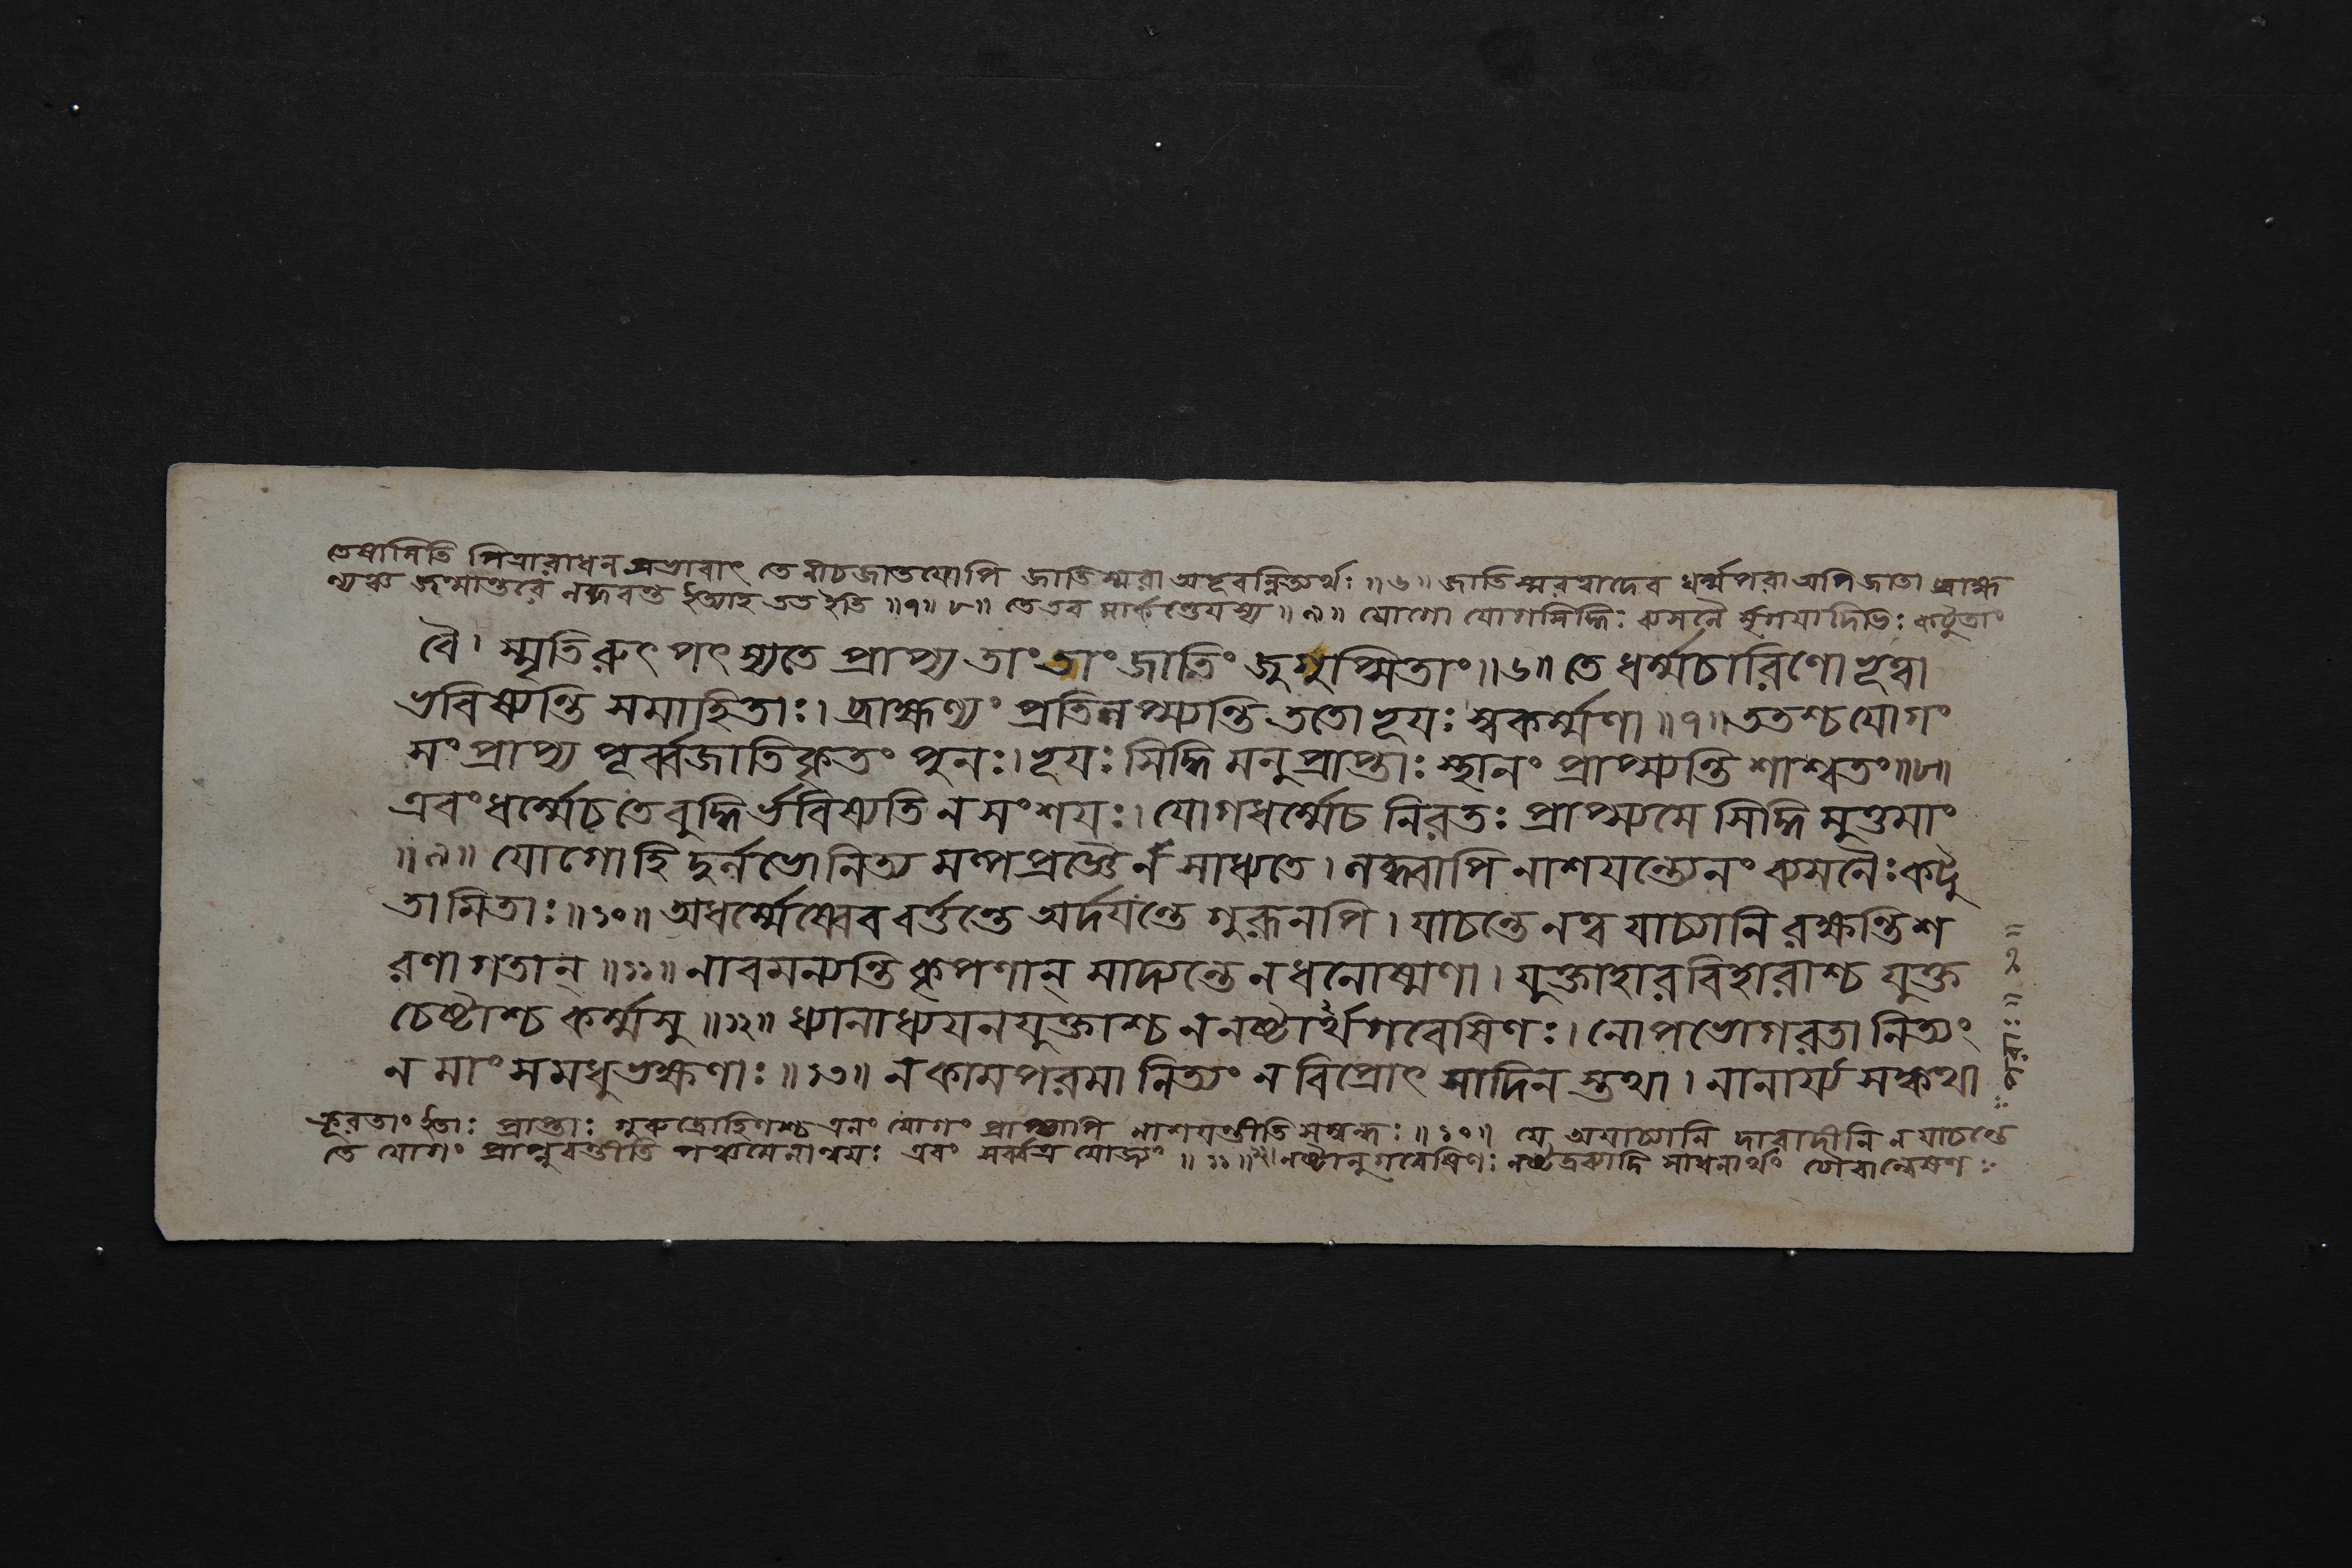 তেষামিতি পিত্রারাধনপ্রভাবাৎ তে নীচজাতযোপি জাতিস্মরা অভূবন্নিত্যর্থঃ ॥৬॥ জাতিস্মরত্বাদেব ধর্ম্মপরা অপি জাতা ব্রাহ্ম
ণ্যঞ্চ জন্মান্তরে লব্ধবন্ত ইত্যাহ তত ইতি ॥৭॥ ৮॥ তে তব মার্কণ্ডেযস্য ॥৯॥ যোগো যোগসিদ্ধিঃ ব্যসনৈ র্মৃগযাদিভিঃ কটুতাং
বৈ। স্মৃতিরুৎপৎস্যতে প্রাপ্য তাং তাং জাতিং জুগুপ্সিতাং॥৬॥ তে ধর্ম্মচারিণো ভূত্বা
ভবিষ্যন্তি সমাহিতাঃ। ব্রাহ্মণ্যং প্রতিলপ্স্যন্তি ততো ভূযঃ স্বকর্ম্মণা ॥৭॥ ততশ্চ যোগং
সংপ্রাপ্য পূর্ব্বজাতিকৃতং পুনঃ। ভূযঃ সিদ্ধি মনুপ্রাপ্তাঃ স্থানং প্রাপ্স্যন্তি শাশ্বতং॥৮॥
এবং ধর্ম্মেচ তে বুদ্ধি র্ভবিষ্যতি ন সংশযঃ। যোগধর্ম্মেচ নিরতঃ প্রাপ্স্যসে সিদ্ধি মুত্তমাং
॥৯॥ যোগোহি দুর্লভো নিত্য মল্পপ্রজ্ঞৈ র্ন সাধ্যতে। লব্ধ্বাপি নাশযন্ত্যেনং ব্যসনৈঃ কটু
তামিতাঃ॥১০॥ অধর্ম্মেষ্বেব বর্ত্তন্তে অর্দযন্তে গুরূনপি। যাচন্তে নত্ব যাচ্যানি রক্ষন্তি শ
রণাগতান্ ॥১১॥ নাবমন্যন্তি কৃপণান্ মাদ্যন্তে ন ধনোষ্মণা। যুক্তাহারবিহারাশ্চ যুক্ত
চেষ্টাশ্চ কর্ম্মসু ॥১২॥ ধ্যানাধ্যযনযুক্তাশ্চ ন নষ্টার্থগবেসিণঃ। নোপভোগরতা নিত্যং
ন মাংসমধুভক্ষণাঃ ॥১৩॥ ন কামপরমা নিত্যং ন বিপ্রোৎ সাদিন স্তথা। নানার্য্য সঙ্কথা
ক্রূরতাং ইতাঃ প্রাপ্তাঃ গুরুদ্রোহিণশ্চ এনং যোগং প্রাপ্যাপি নাশযন্তীতি সম্বন্ধঃ ॥১০॥ যে অযাচ্যানি দারাদীনি ন যাচন্তে
তে যোগং প্রাপ্নুবন্তীতি পঞ্চমেনান্বযঃ এবং সর্ব্বত্র যোজ্যং ॥১১॥ নষ্টানুগবেষিণঃ নষ্টদ্রব্যাদি সাধনার্থং চৌরান্বেষণ